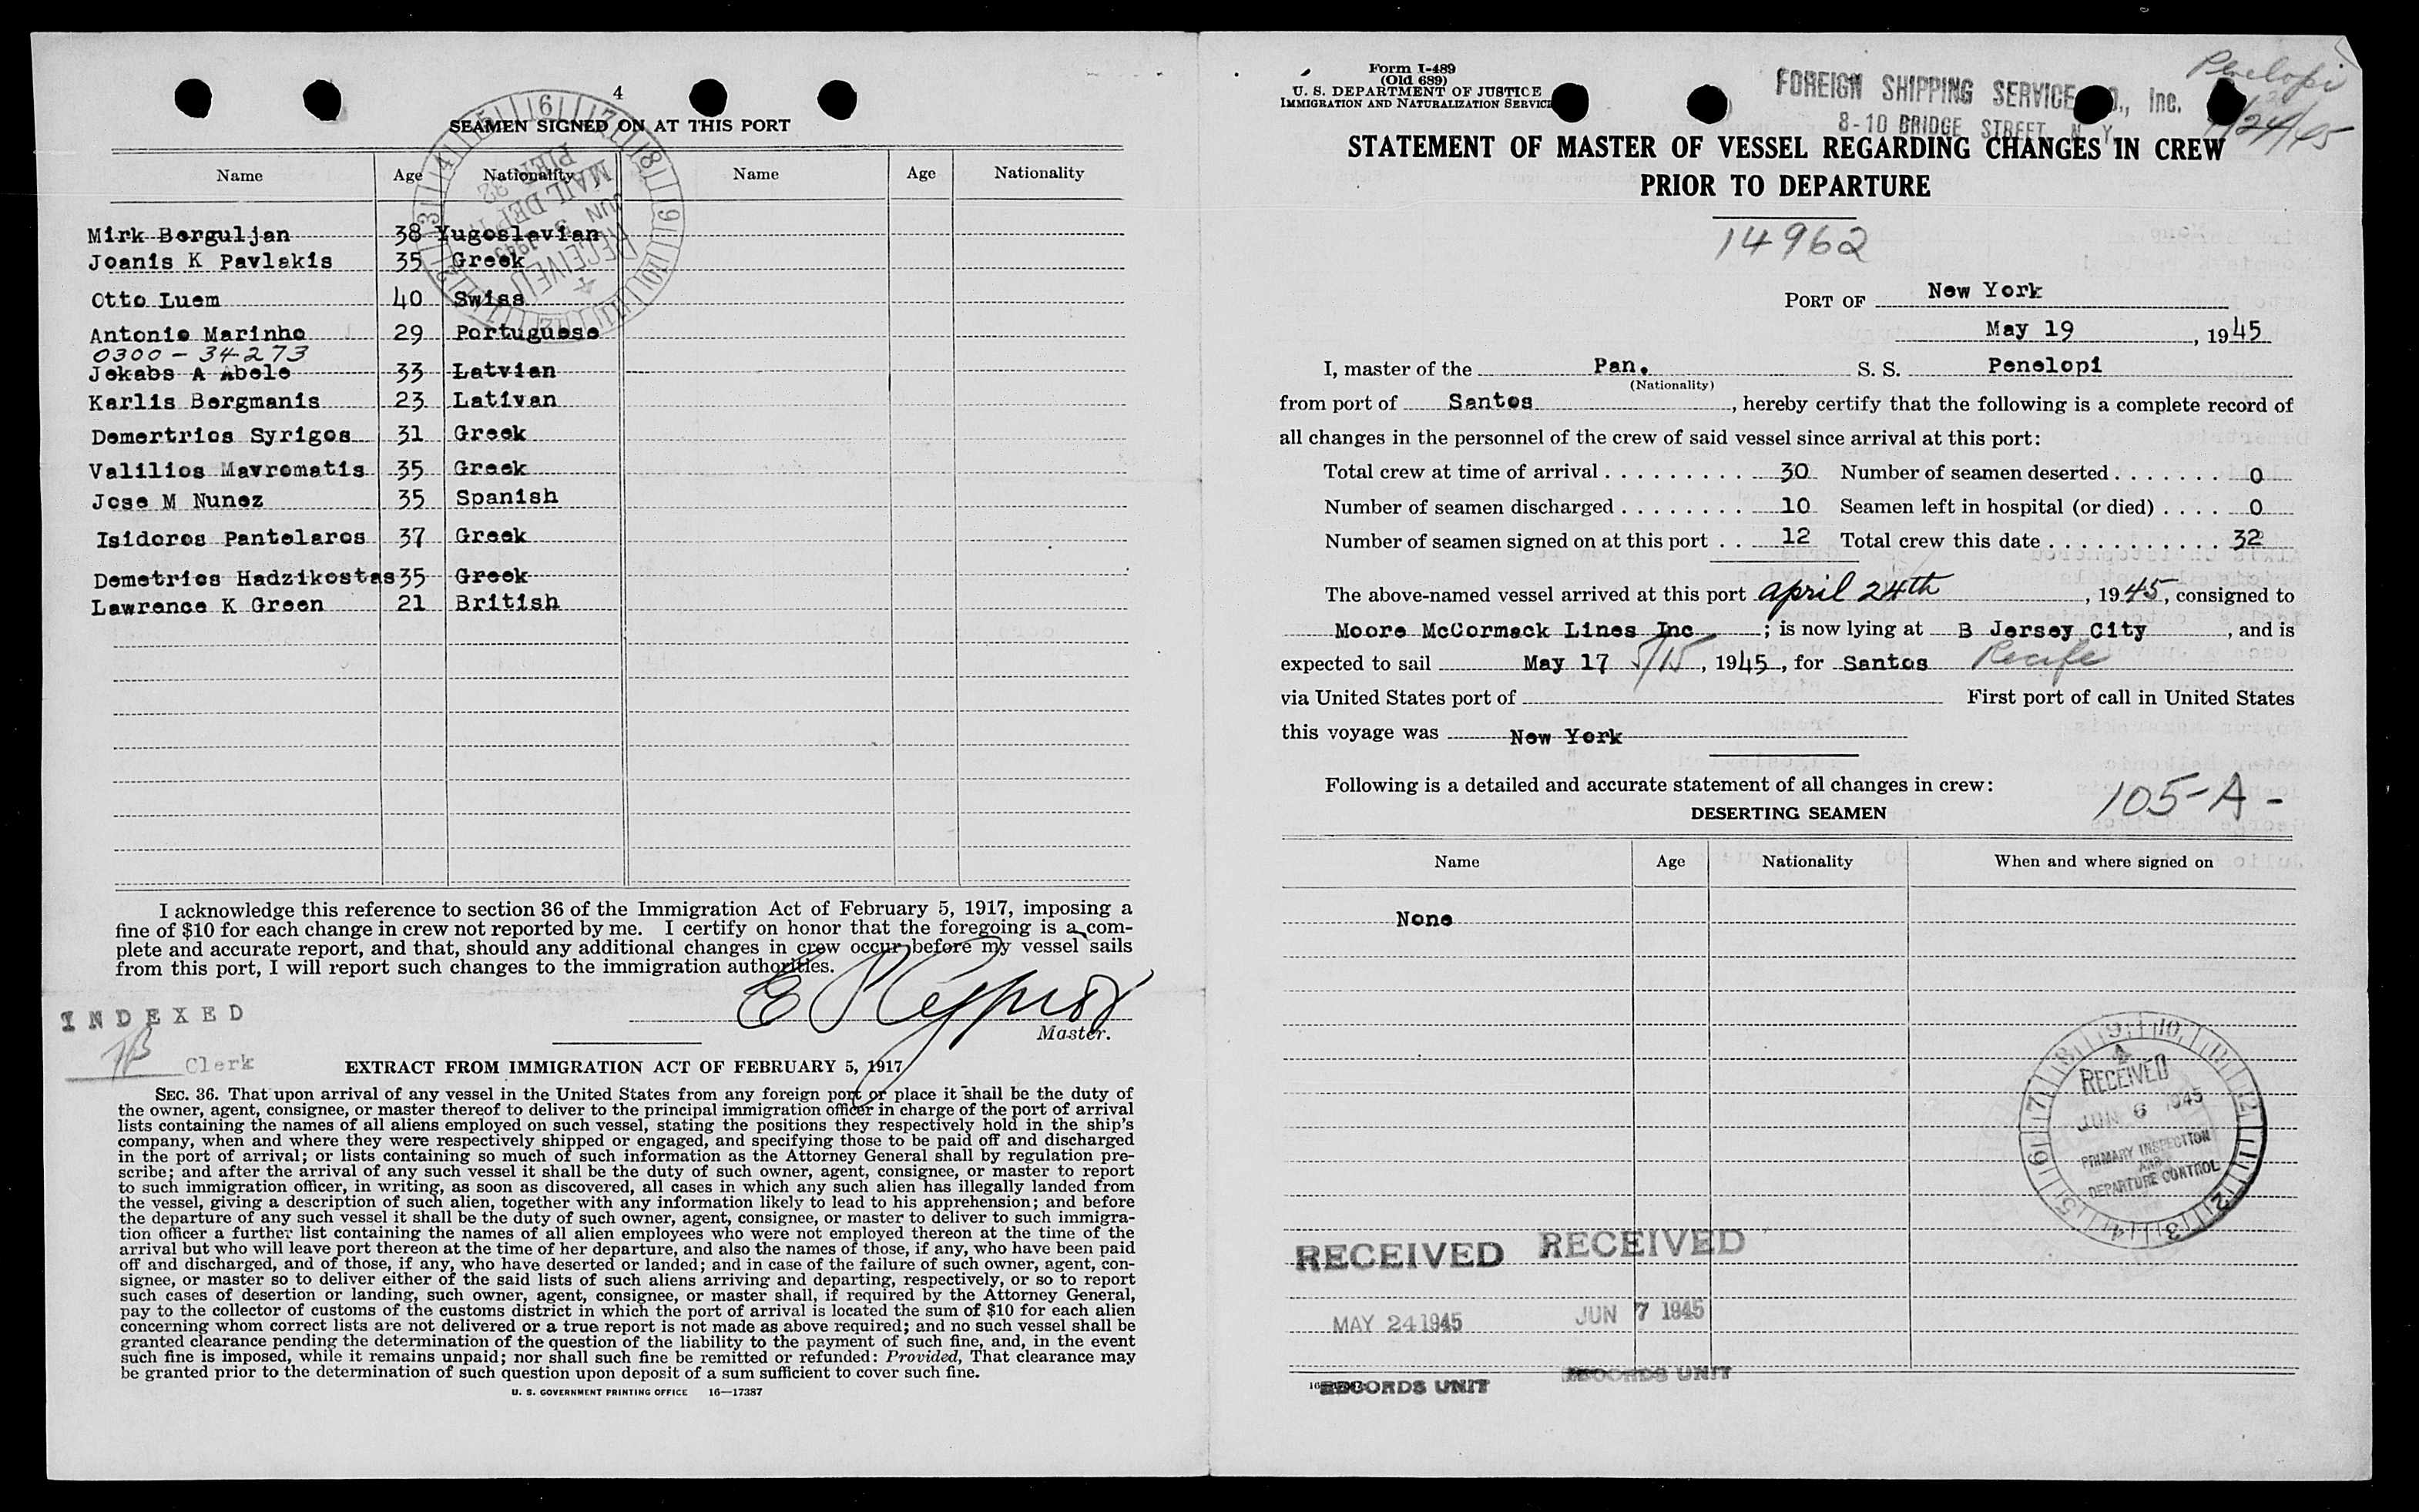 4
SEAMEN SIGNED ON AT THIS PORT
Name Age Nationality Name Age Nationality
Mirk Berguljan 38 Yugoslavian
Joanis K Pavlakis 35 Greek
Otto Luem 40 Swiss
Antonio Marinho 29 Portuguese
0300-34273
Jekabs A Abele 33 Latvian
Karlis Bergmanis 23 Lativan
Demertrios Syrigos 31 Greek
Valilios Mavromatis 35 Greek
Jose M Nunez 35 Spanish
Isidoros Pantelaros 37 Greek
Demetrios Hadzikostas 35 Greek
Lawrence K Green 21 British
RECEIVED
JUN 1945
MAIL DEPT
PIER 92
I acknowledge this reference to section 36 of the Immigration Act of February 5, 1917, imposing a
fine of $10 for each change in crew not reported by me. I certify on honor that the foregoing is a com-
plete and accurate report, and that, should any additional changes in crew occur before my vessel sails
from this port, I will report such changes to the immigration authorities.
Master.
INDEXED
Clerk
EXTRACT FROM IMMIGRATION ACT OF FEBRUARY 5, 1917
SEC. 36. That upon arrival of any vessel in the United States from any foreign port or place it shall be the duty of
the owner, agent, consignee, or master thereof to deliver to the principal immigration officer in charge of the port of arrival
lists containing the names of all aliens employed on such vessel, stating the positions they respectively hold in the ship's
company, when and where they were respectively shipped or engaged, and specifying those to be paid off and discharged
in the port of arrival; or lists containing so much of such information as the Attorney General shall by regulation pre-
scribe; and after the arrival of any such vessel it shall be the duty of such owner, agent, consignee, or master to report
to such immigration officer, in writing, as soon as discovered, all cases in which any such alien has illegally landed from
the vessel, giving a description of such alien, together with any information likely to lead to his apprehension; and before
the departure of any such vessel it shall be the duty of such owner, agent, consignee, or master to deliver to such immigra-
tion officer a further list containing the names of all alien employees who were not employed thereon at the time of the
arrival but who will leave port thereon at the time of her departure, and also the names of those, if any, who have been paid
off and discharged, and of those, if any, who have deserted or landed; and in case of the failure of such owner, agent, con-
signee, or master so to deliver either of the said lists of such aliens arriving and departing, respectively, or so to report
such cases of desertion or landing, such owner, agent, consignee, or master shall, if required by the Attorney General,
pay to the collector of customs of the customs district in which the port of arrival is located the sum of $10 for each alien
concerning whom correct lists are not delivered or a true report is not made as above required; and no such vessel shall be
granted clearance pending the determination of the question of the liability to the payment of such fine, and, in the event
such fine is imposed, while it remains unpaid; nor shall such fine be remitted or refunded: Provided, That clearance may
be granted prior to the determination of such question upon deposit of a sum sufficient to cover such fine.
U. S. GOVERNMENT PRINTING OFFICE 16—17387
Form I-489
(Old 689)
U. S. DEPARTMENT OF JUSTICE
IMMIGRATION AND NATURALIZATION SERVICE
FOREIGN SHIPPING SERVICE Inc.
8-10 BRIDGE STREET, N. Y.
Penelopi
STATEMENT OF MASTER OF VESSEL REGARDING CHANGES IN CREW
PRIOR TO DEPARTURE
14962
PORT OF New York
May 19, 1945
I, master of the Pan. S. S. Penelopi
(Nationality)
from port of Santos, hereby certify that the following is a complete record of
all changes in the personnel of the crew of said vessel since arrival at this port:
Total crew at time of arrival 30 Number of seamen deserted 0
Number of seamen discharged 10 Seamen left in hospital (or died) 0
Number of seamen signed on at this port 12 Total crew this date 32
The above-named vessel arrived at this port April 24th, 1945, consigned to
Moore McCormack Lines Inc; is now lying at B Jersey City, and is
expected to sail May 17 5/15, 1945, for Santos Recife
via United States port of First port of call in United States
this voyage was New York
Following is a detailed and accurate statement of all changes in crew:
105-A-
DESERTING SEAMEN
Name Age Nationality When and where signed on
None
RECEIVED
JUN 6 1945
PRIMARY INSPECTION
AND
DEPARTURE CONTROL
RECEIVED RECEIVED
MAY 24 1945 JUN 7 1945
RECORDS UNIT RECORDS UNIT